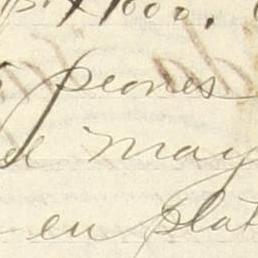 $1000.
peones
de may
en plat